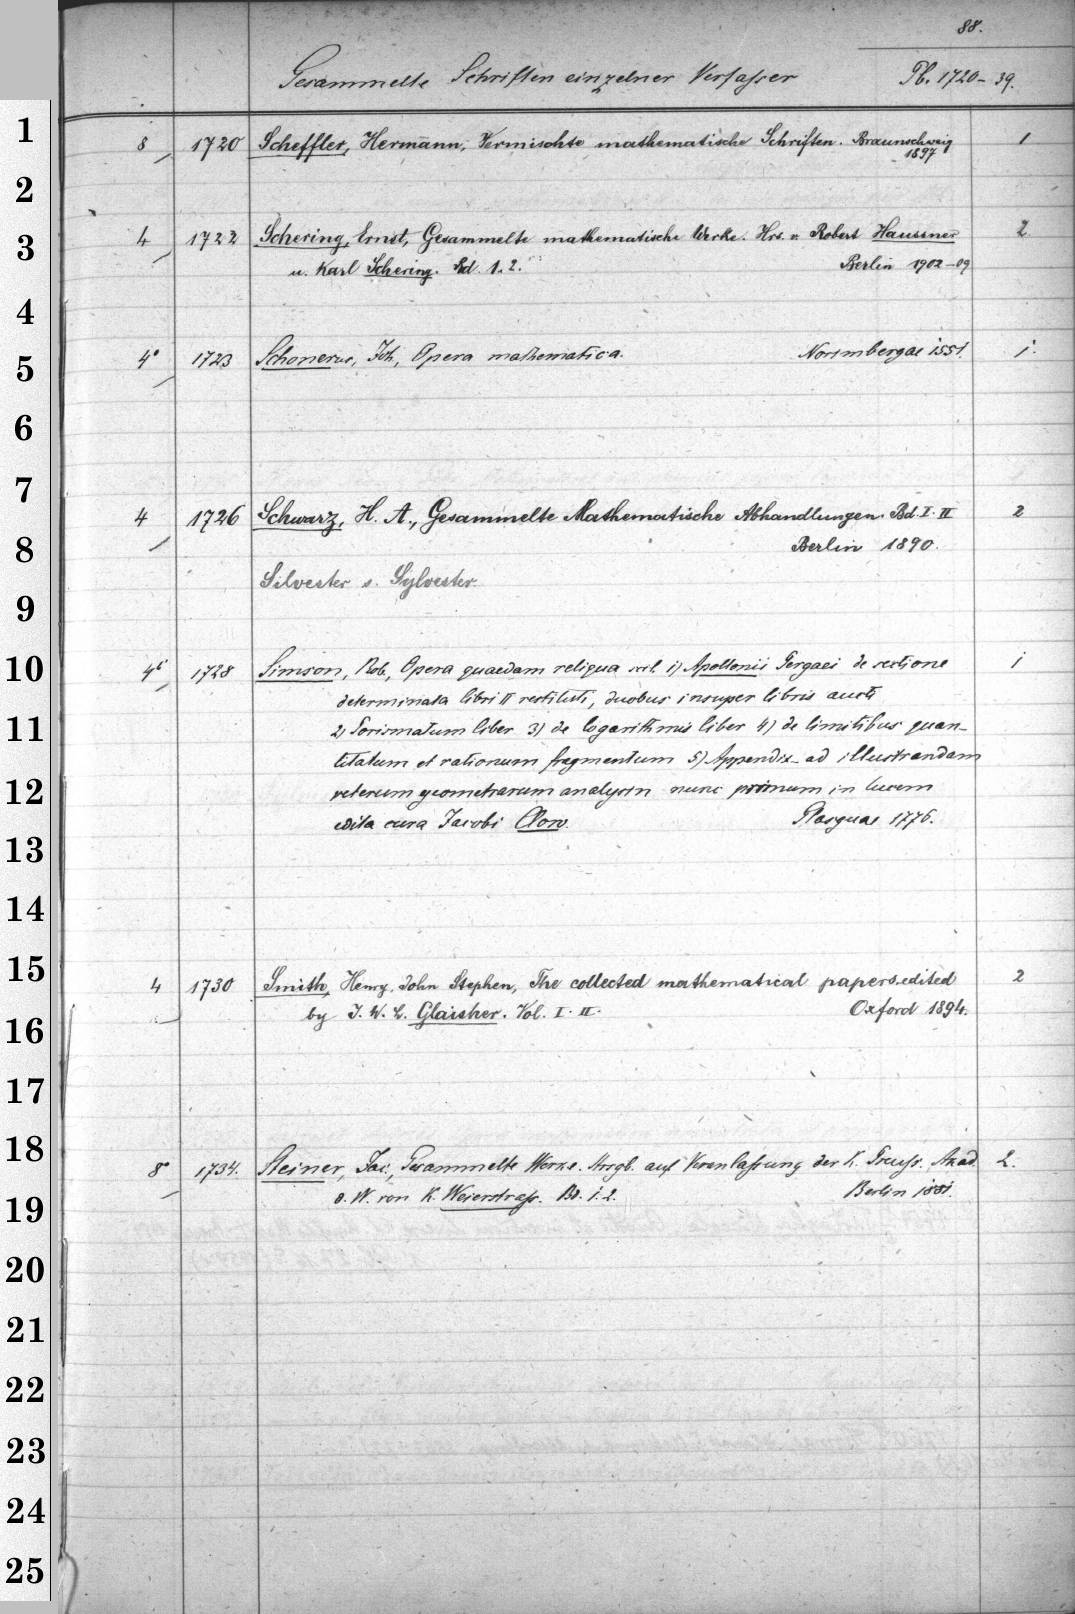 88.
Gesammelte Schriften einzelner Verfasser Pb. 1720-39.
1
8 1720 Scheffler, Hermann, Vermischte mathematische Schriften. Braunschweig 1
1897
2
3
4 1722 Schering, Ernst, Gesammelte mathematische Werke. Hrs. v. Robert Haussner 2
u. Karl Schering. Bd. 1. 2. Berlin 1902-09
4
5
4° 1723 Schonerus, Joh., Opera mathematica. Norimbergae 1551. 1
6
7
4 1726 Schwarz, H. A., Gesammelte Mathematische Abhandlungen. Bd. I. II 2
8
Berlin 1890.
Silvester s. Sylvester.
9
10
4° 1728 Simson, Rob., Opera quaedam reliqua scil. 1) Apollonii Pergaei de sectione 1
determinata libri II restituti, duobus insuper libris aucti
11
2) Porismatum liber 3) de logarithmis liber 4) de limitibus quan-
titatum et rationum fragmentum 5) Appendix ad illustrandam
12
veterum geometrarum analysin nunc primum in lucem
edita cura Jacobi Clow. Glasguae 1776.
13
14
15
4 1730 Smith, Henry, John Stephen, The collected mathematical papers. edited 2
16
by J. W. L. Glaisher. Vol. I. II. Oxford 1894.
17
18
8° 1734. Steiner, Jac., Gesammelte Werke. Hrsgb. auf Veranlassung der K. Preuss. Akad. 2.
19
d. W. von K. Weierstrass. Bd. 1. 2. Berlin 1881
20
21
22
23
24
25